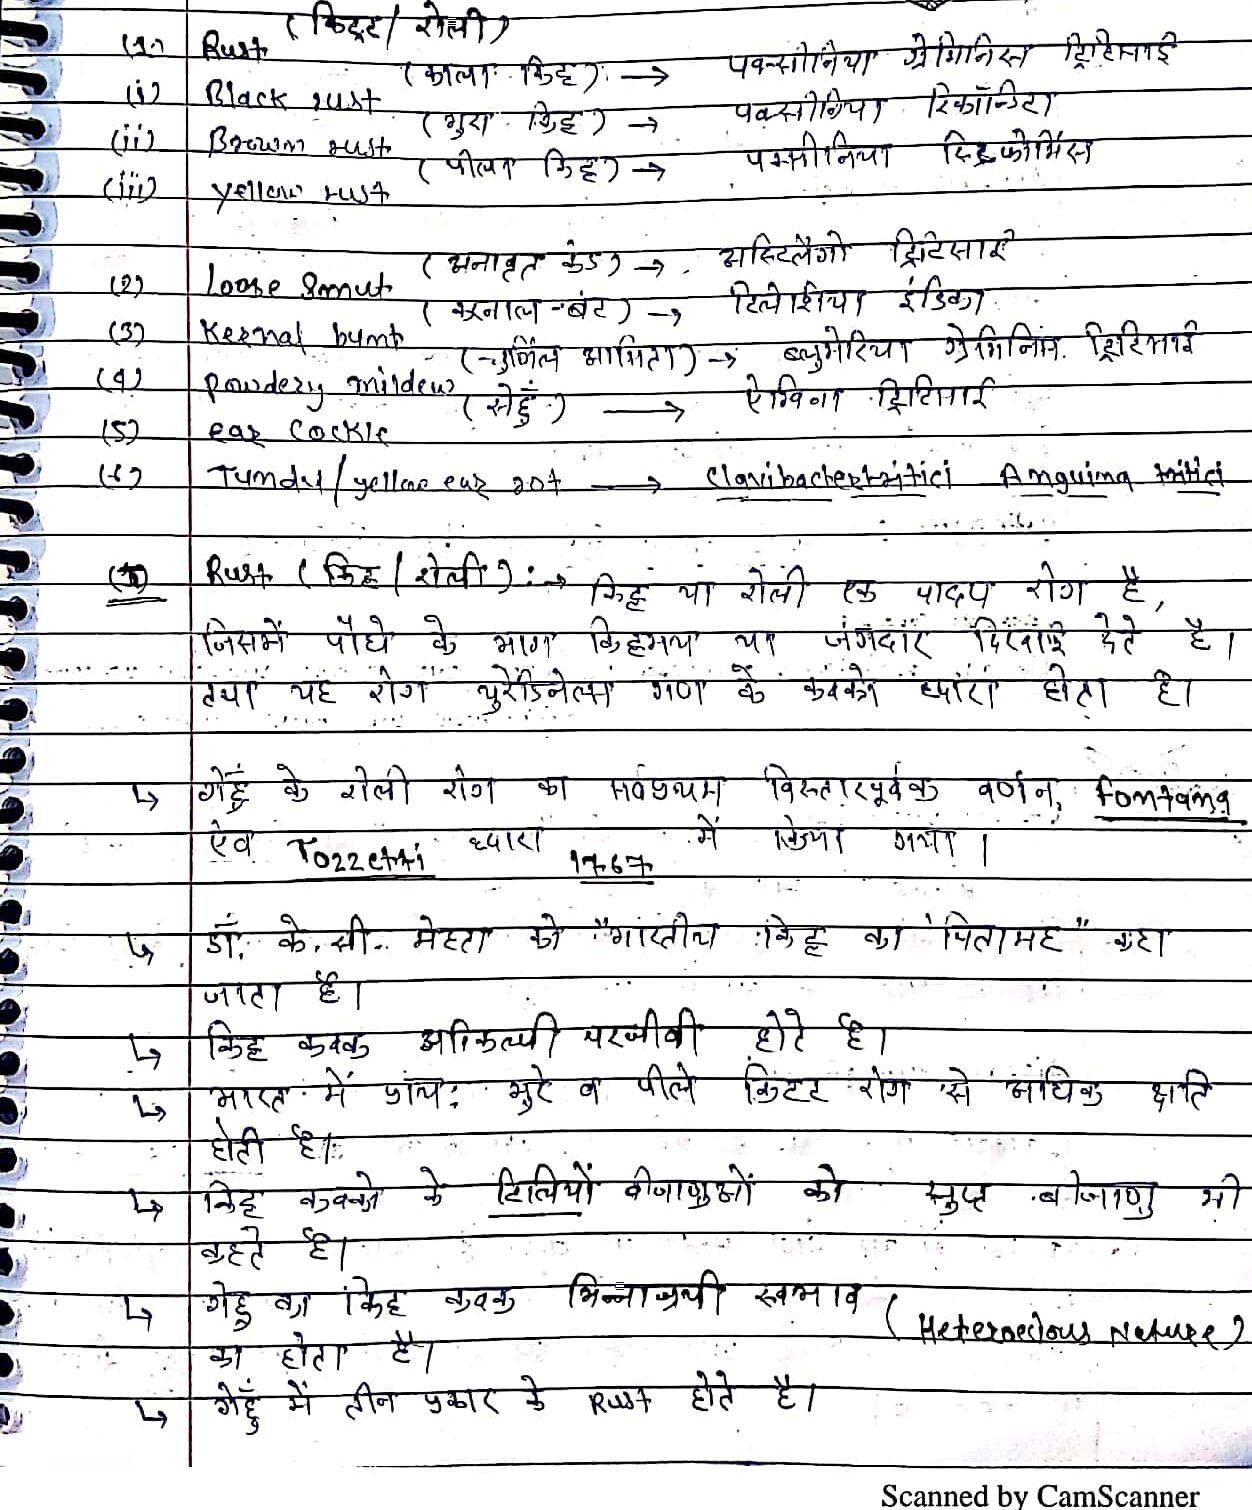 (1.) Rust (किट्ट/रोली)
(i) Black rust (काला किट्ट) → पक्सीनिया ग्रेमिनिस ट्रिटिसाई
(ii) Brown rust (भुरा किट्ट) → पक्सीनिया रिकॉन्डिटा
(iii) yellow rust (पीला किट्ट) → पक्सीनिया स्ट्रिफोर्मिस
(2) Loose Smut (अनावृत कंड) → अस्टिलैगो ट्रिटिसाई
(3) Kernal bunt (करनाल-बंट) → टिलेशिया इंडिका
(4) powdery mildew (चुर्णिल आसिता) → ब्लुमेरिया ग्रेमिनिस ट्रिटिसाई
(5) ear cockle (सेहुँ) → ऐंग्विना ट्रिटिसाई
(6) Tundu/yellow ear rot → Clavibacter tritici Anguina tritici
(1) Rust (किट्ट/रोली) :→ किट्ट या रोली एक पादप रोग है,
जिसमें पौधे के भाग किट्टमय या जंगदार दिखाई देते है।
तथा यह रोग युरेडिनेल्स गण के कवको ध्दारा होता है।
↳ गेहुँ के रोली रोग का सर्वप्रथम विस्तारपूर्वक वर्णन, Fontana
ऐव Tozzetti ध्दारा 1767 में किया गया।
↳ डॉ. के. सी. मेहता को "भारतीय किट्ट का पितामह" कहा
जाता है।
↳ किट्ट कवक अविकल्पी परजीवी होते है।
↳ भारत में प्राय: भुरे व पीले किटट रोग से अधिक क्षति
होती है।
↳ किट्ट कवको के टिलियों बीजाणुओं को सुप्त बीजाणु भी
कहते है।
↳ गेहु का किट्ट कवक भिन्नाश्रयी स्वभाव (Heteroecious Nature)
का होता है।
↳ गेहुँ में तीन प्रकार के Rust होते है।
Scanned by CamScanner